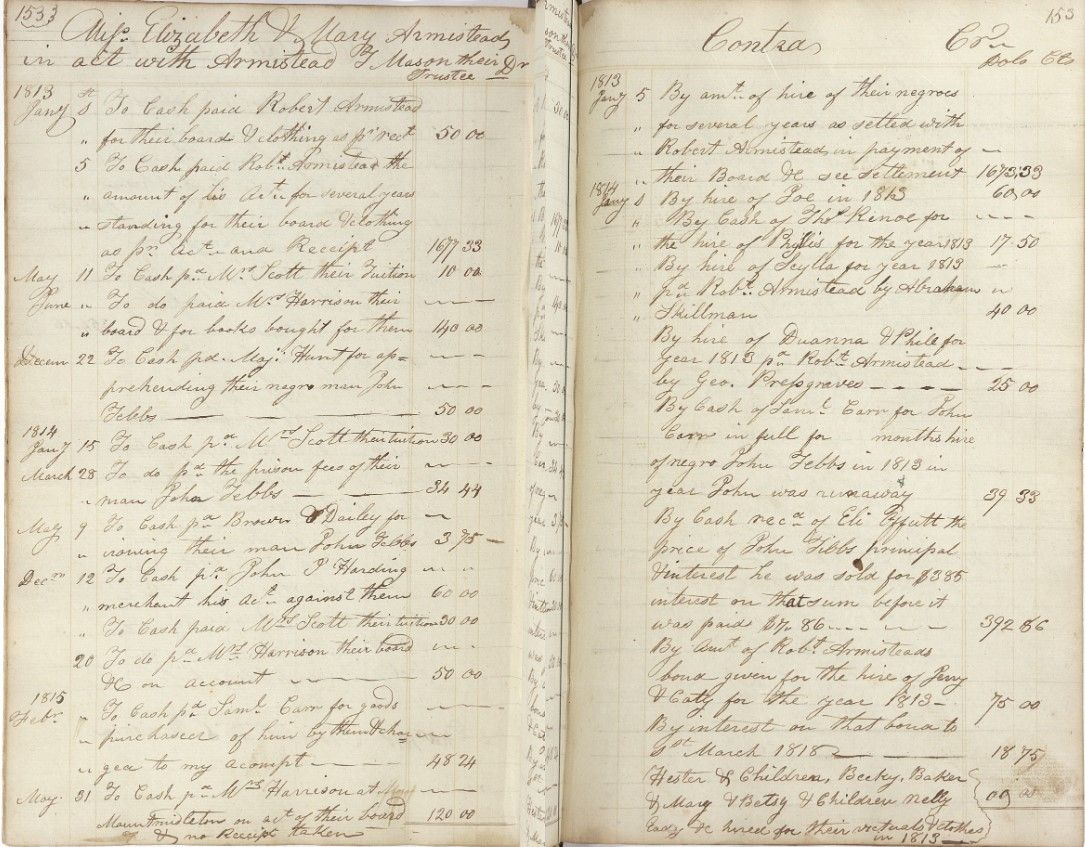 153
Miss Elizabeth & Mary Armistead
in act with Armistead T Mason their
Trustee Dr
1813
Jany 5 To Cash paid Robert Armistead
for their board & clothing as pr rect 50 00
" 5 To Cash paid Robt Armistead the
" amount of his Act. for several years
" standing for their board & clothing
as pr Act. and Receipt 1677 33
May 11 To Cash pd Mrs Scott their Tuition 10 00
June " To do paid Mrs Harrison their
" board & for books bought for them 140 00
Decem 22 To Cash pd. Maj. Hunt for ap=
prehending their negro man John
Tebbs 50 00
1814
Jany 15 To Cash pd Mrs Scott their tuition 30 00
March 28 To do pd the prison fees of their
" man John Tebbs 34 44
May 9 To Cash pd Brown & Dailey for
" ironing their man John Tebbs 3 75
Decm 12 To Cash pd John P Harding
" merchant his Act. against them 60 00
" To Cash paid Mrs Scott their tuition 30 00
20 To do pd Mrs Harrison their board
&c on account 50 00
1815
Febr " To Cash pd Saml Carr for goods
" purchased of him by them & char
" ged to my acompt 48 24
May 31 To Cash pd Mrs Harrison at
Mountmisleton on act of their board 120 00
& no Receipt taken
153
Contra Crn
Dols Cts
1813
Jany 5 By amt. of hire of their negroes
" for several years as setled with
" Robert Armistead in payment of
" their Board &c see settlement 1673,33
1814
Jany 1 By hire of Poe in 1813 60,00
" By Cash of Thos Renoe for
" the hire of Phyllis for the year 1813 17 50
" By hire of Scylla for year 1813
" pd Robt. Armistead by Abraham
" Skillman 40 00
By hire of Duanna & Phile for
year 1813 pd Robt. Armistead
by Geo. Pressgraves 25 00
By Cash of Saml Carr for John
Carr in full for months hire
of negro John Tebbs in 1813 in
year John was runaway 39 33
By Cash recd of Eli Offutt the
price of John Tebbs principal
& interest he was sold for $385
interest on that sum before it
was paid $7.86 392 86
By Amt of Robt. Armisteads
bond given for the hire of Jeny
& Caty for the year 1813 75 00
By interest on that bond to
1st March 1818 18 75
Hester & Children, Becky, Baker
& Mary & Betsy & Children Nelly 00
Eady &c hired for their victuals & clothes
in 1813